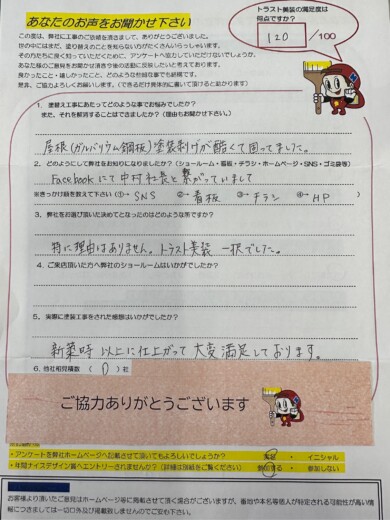 あなたのお声をお聞かせ下さい
トラスト美装の満足度は
何点ですか?
120 /100
この度は、弊社に工事のご依頼を頂きまして、ありがとうございました。
世の中にはまだ、塗り替えのことを知らない方がたくさんいらっしゃいます。
その方たちに良く知っていただくために、アンケートへ協力していただけないでしょうか。
あなた様のご意見をお聞かせ頂き今後の活動に反映したいと考えております。
良かったこと・嬉しかったこと、どのような些細な事でも結構です。
是非、ご協力よろしくお願いします。(できるだけ具体的に書いて頂けると助かります)
1. 塗替え工事にあたってどのような事でお悩みでしたか?
また、それを解消することはできましたか?(理由もお聞かせ下さい。)
屋根(ガルバリウム鋼板)塗装剥げが酷くて困ってました。
2. どのようにして弊社をお知りになりましたか?(ショールーム・看板・チラシ・ホームページ・SNS・ゴミ袋等)
Facebookにて中村社長と繋がっていまして
※きっかけ順を教えて下さい(①→ SNS ②→ 看板 ③→ チラシ ④→ HP )
3. 弊社をお選び頂いた決めてとなったのはどのような所ですか?
特に理由はありません。トラスト美装一択でした。
4. ご来店頂いた方へ弊社のショールームはいかがでしたか?
5. 実際に塗装工事をされた感想はいかがでしたか?
新築時以上に仕上がって大変満足しております。
6. 他社相見積数 ( 0 )社
ご協力ありがとうございます
・アンケートを弊社ホームページへ記載させて頂いてもよろしいでしょうか? 実名 ・ イニシャル
・年間ナイスデザイン賞へエントリーされませんか?(詳細は別紙をご覧ください) 参加する ・ 参加しない
お客様より頂いたご意見はホームページ等に掲載させて頂く場合がございますが、番地や本名等個人が特定される可能性が高い情
報につきましては一切口外及び掲載致しませんのでご安心下さい。